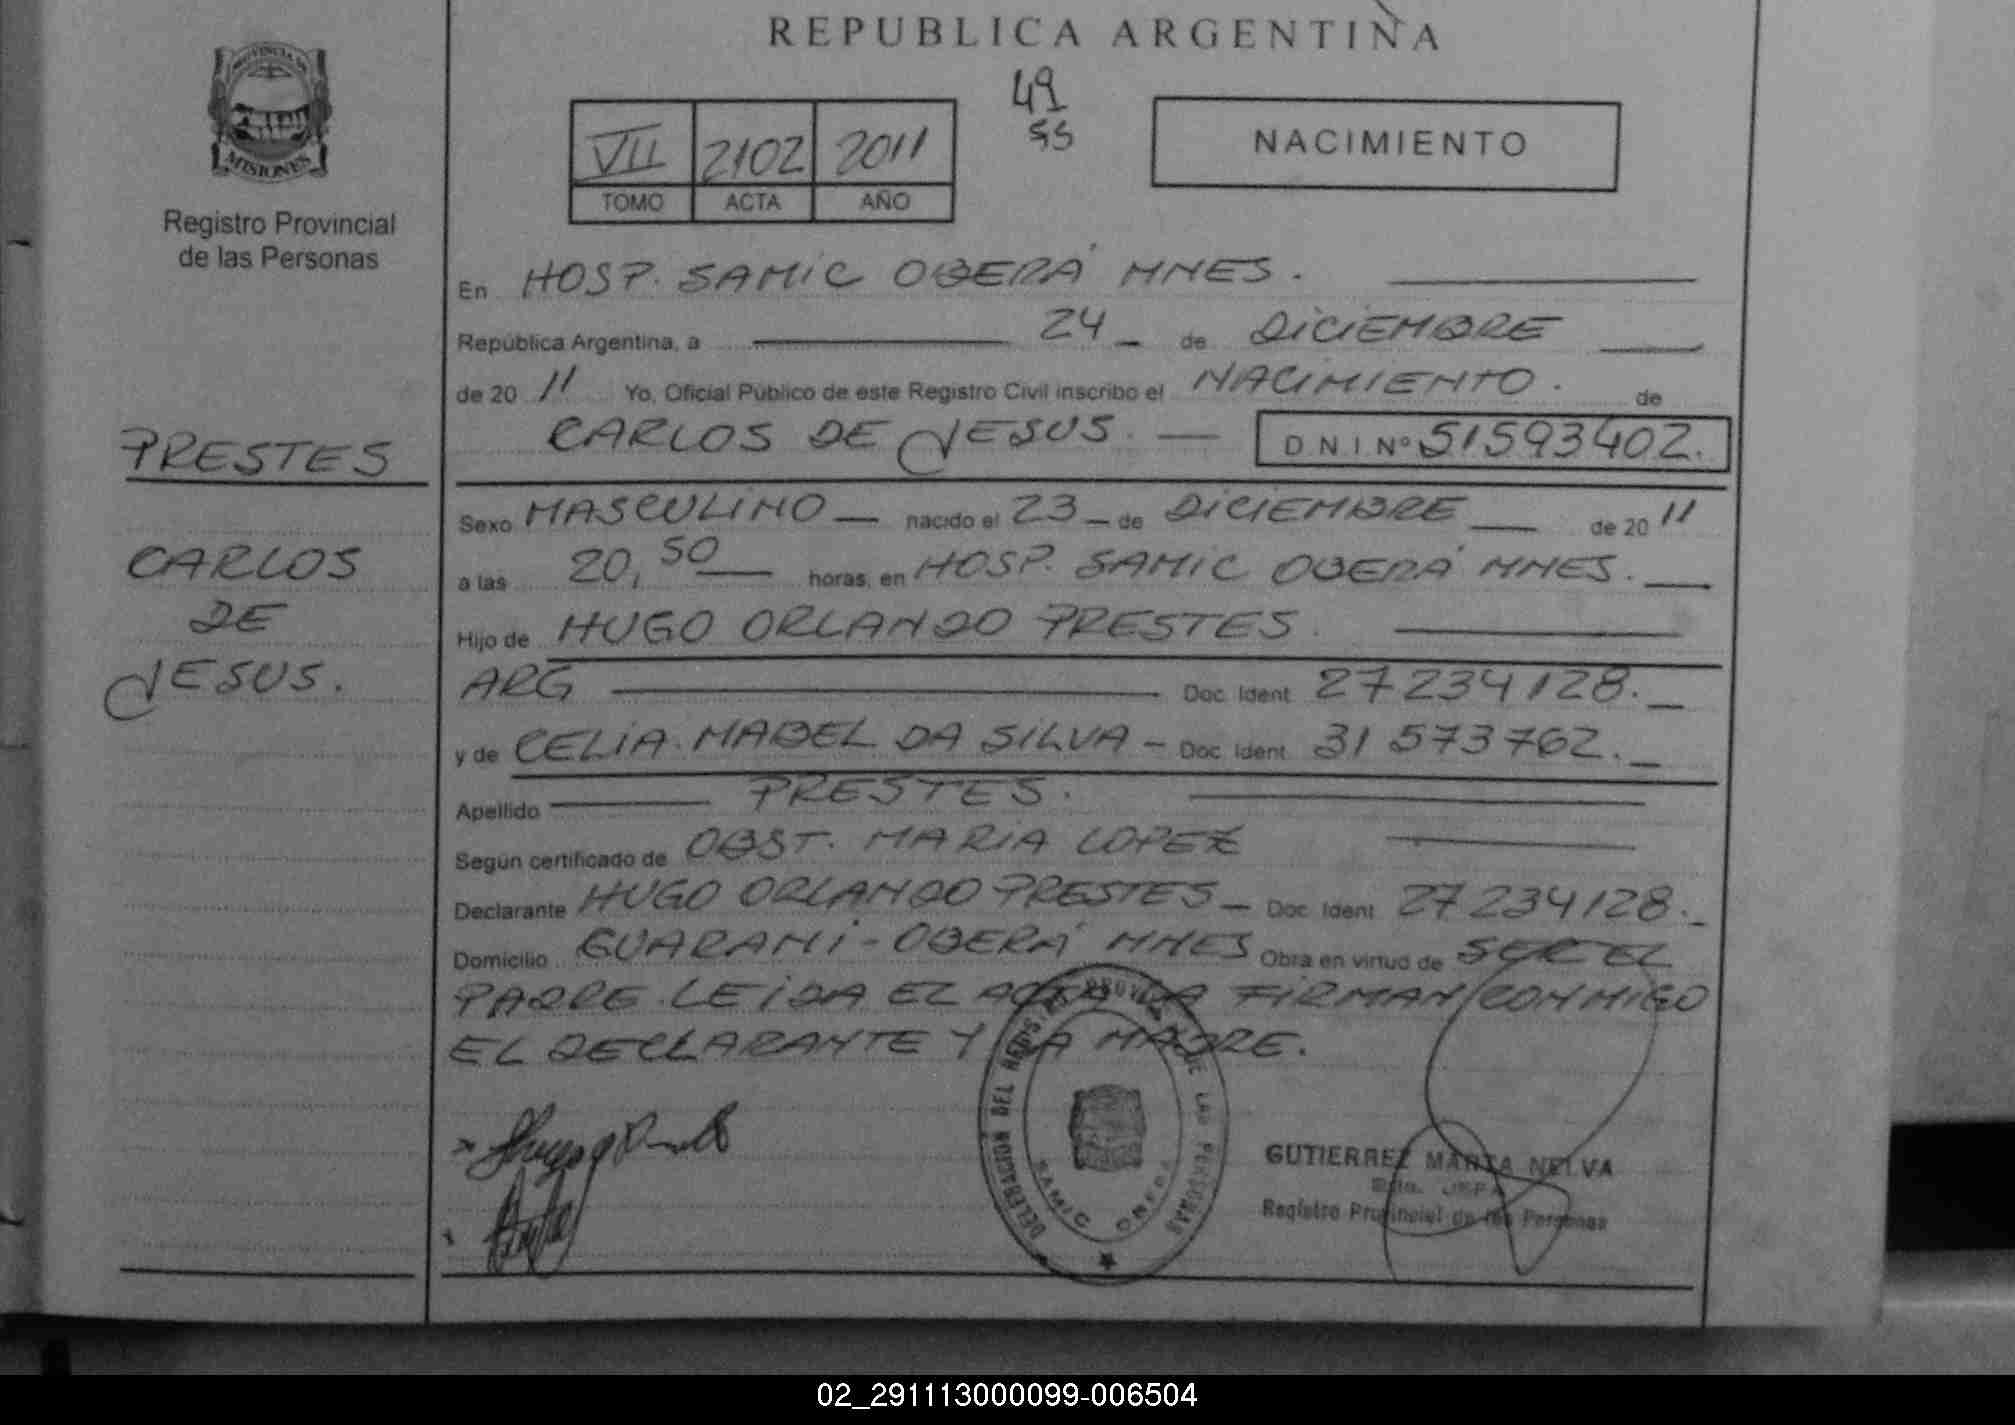 REPUBLICA ARGENTINA
PROVINCIA DE
MISIONES
Registro Provincial
de las Personas
49
55
VII 2102 2011
TOMO ACTA AÑO
NACIMIENTO
En HOSP. SAMIC OBERÁ MNES.
República Argentina, a 24 de DICIEMBRE
de 20 11 Yo, Oficial Público de este Registro Civil inscribo el NACIMIENTO. de
CARLOS DE JESUS. D N I Nº 51593402.
PRESTES
CARLOS
DE
JESUS.
Sexo MASCULINO nacido el 23 de DICIEMBRE de 20 11
a las 20,50 horas, en HOSP. SAMIC OBERÁ MNES.
Hijo de HUGO ORLANDO PRESTES.
ARG Doc. Ident. 27234128.
y de CELIA MABEL DA SILVA - Doc. Ident. 31573762.
Apellido PRESTES.
Según certificado de OBST. MARIA LOPEZ
Declarante HUGO ORLANDO PRESTES Doc. Ident. 27234128.
Domicilio GUARANI - OBERÁ MNES Obra en virtud de SER EL
PADRE. LEIDA EL ACTA LA FIRMAN CONMIGO
EL DECLARANTE Y LA MADRE.
DELEGACION DEL REGISTRO PROVINCIAL DE LAS PERSONAS
SAMIC OBERA
GUTIERREZ MARTA NELVA
Registro Provincial de las Personas
02_291113000099-006504